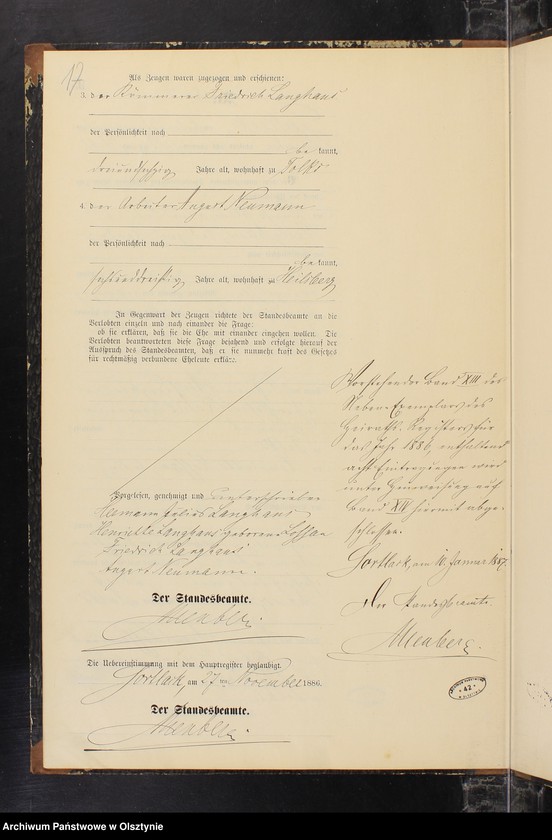 17
Als Zeugen waren zugezogen und erschienen:
3. der Kämmerer Friedrich Langhans
der Persönlichkeit nach
be kannt,
dreiundsechzig Jahre alt, wohnhaft zu Tolks
4. der Arbeiter August Neumann
der Persönlichkeit nach
be kannt,
sechsunddreißig Jahre alt, wohnhaft zu Heilsberg
In Gegenwart der Zeugen richtete der Standesbeamte an die
Verlobten einzeln und nach einander die Frage:
ob sie erklären, daß sie die Ehe mit einander eingehen wollen. Die
Verlobten beantworteten diese Frage bejahend und erfolgte hierauf der
Ausspruch des Standesbeamten, daß er sie nunmehr kraft des Gesetzes
für rechtmäßig verbundene Eheleute erkläre.
Vorgelesen, genehmigt und unterschrieben
Hermann Julius Langhans
Henriette Langhans geborene
Friedrich Langhans
August Neumann.
Der Standesbeamte.
Altenberg.
Die Uebereinstimmung mit dem Hauptregister beglaubigt.
Sortlack, am 27 ten November 1886.
Der Standesbeamte.
Altenberg.
Vorstehender Band XIII des
Neben-Exemplars des
Heiraths-Registers für
das Jahr 1886, enthaltend
acht Eintragungen wird
unter Hinweisung auf
Band XIV hiermit abge-
schlossen.
Sortlack, am 10. Januar 1887.
Der Standesbeamte.
Altenberg.
42
Archiwum Państwowe w Olsztynie